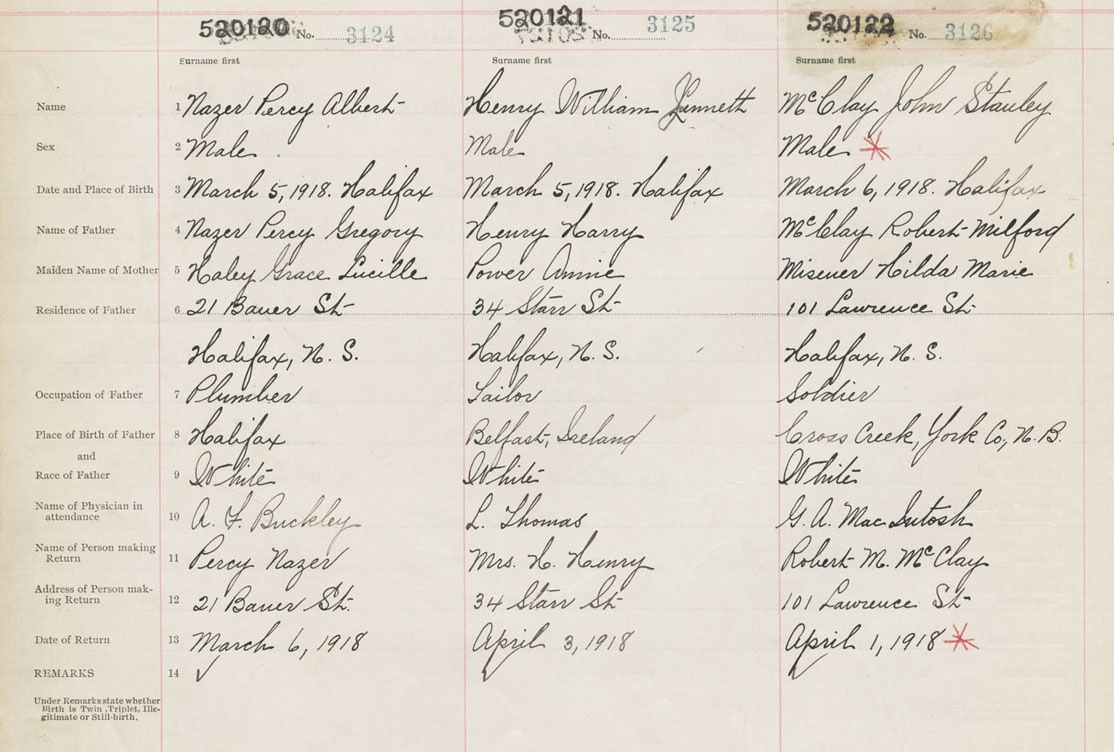 520120 No. 3124 520121 No. 3125 520122 No. 3126
Surname first Surname first Surname first
Name 1 Nazer Percy Albert Henry William Jannett McClay John Stanley
Sex 2 Male Male Male *
Date and Place of Birth 3 March 5, 1918. Halifax March 5, 1918. Halifax March 6, 1918. Halifax
Name of Father 4 Nazer Percy Gregory Henry Harry McClay Robert Milford
Maiden Name of Mother 5 Haley Grace Lucille Power Annie Misener Hilda Marie
Residence of Father 6 21 Bauer St 34 Starr St 101 Lawrence St.
Halifax, N. S. Halifax, N. S. Halifax, N. S.
Occupation of Father 7 Plumber Tailor Soldier
Place of Birth of Father 8 Halifax Belfast, Ireland Cross Creek, York Co., N. B.
and
Race of Father 9 White White White
Name of Physician in
attendance 10 A. F. Buckley L. Thomas G. A. MacIntosh
Name of Person making
Return 11 Percy Nazer Mrs. H. Henry Robert M. McClay
Address of Person mak-
ing Return 12 21 Bauer St. 34 Starr St 101 Lawrence St
Date of Return 13 March 6, 1918 April 3, 1918 April 1, 1918 *
REMARKS 14 ✓
Under Remarks state whether
Birth is Twin, Triplet, Ille-
gitimate or Still-birth.